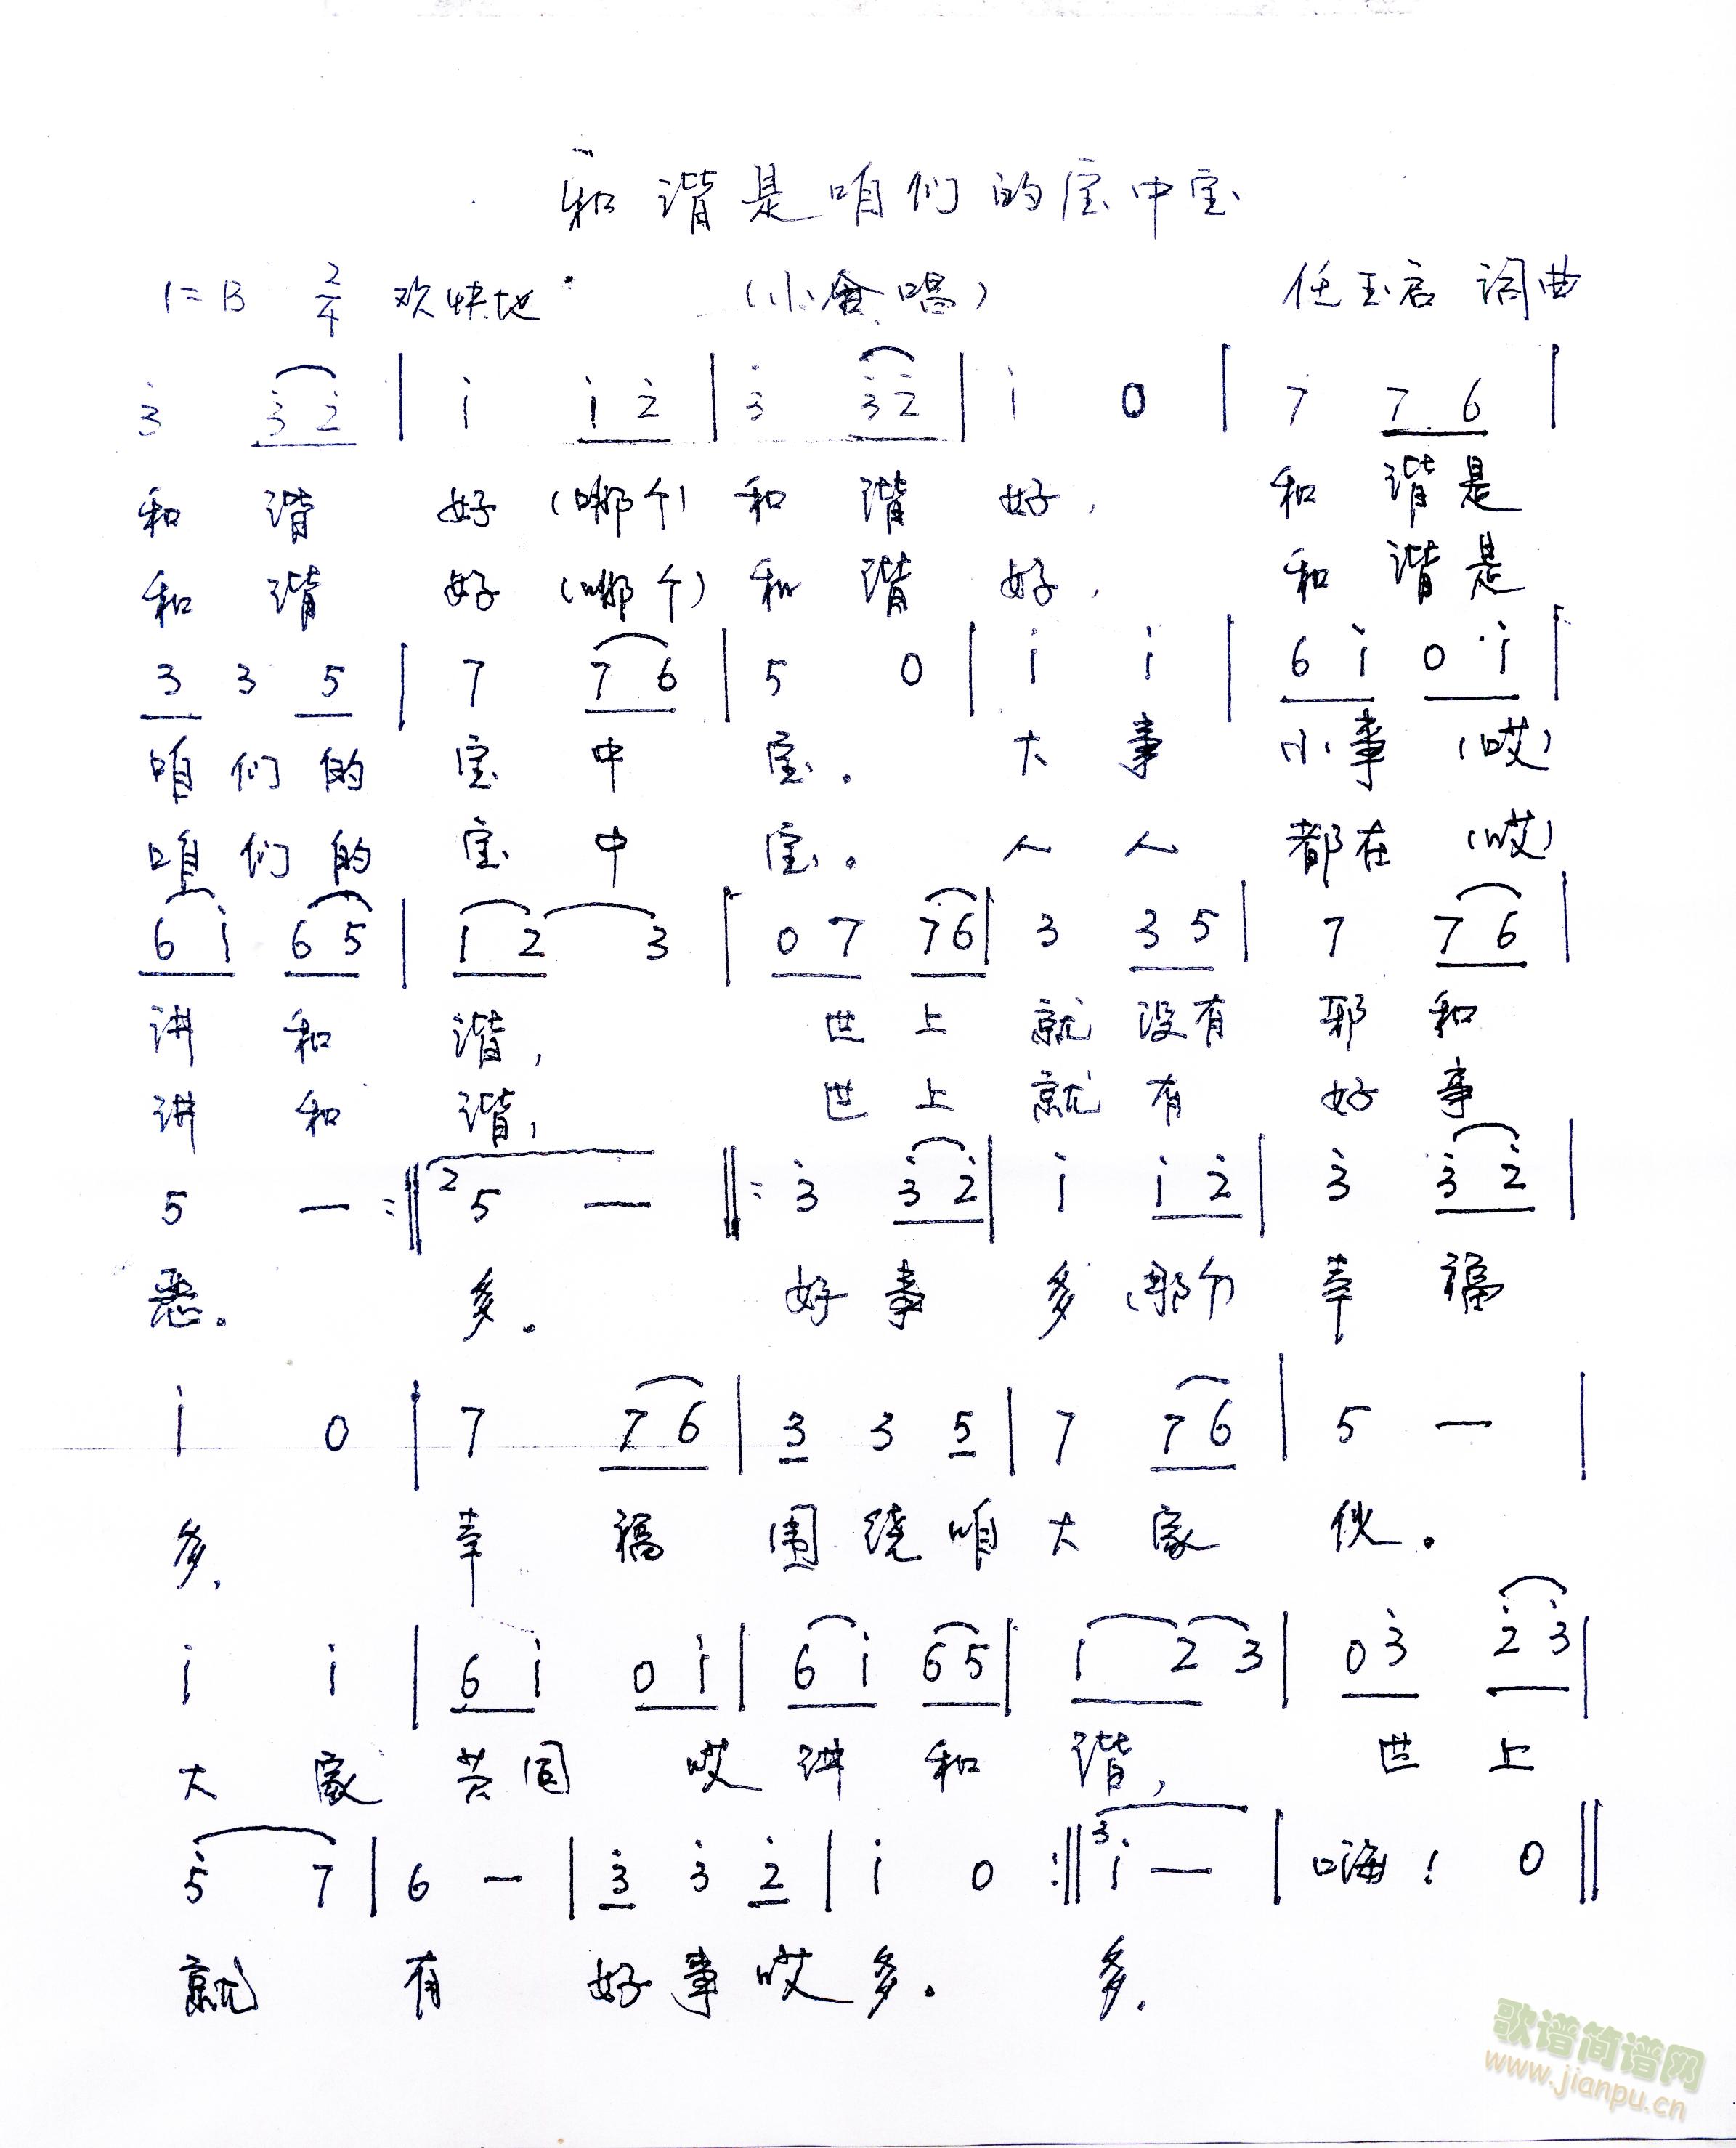 和谐是咱们的宝中宝
1=B 2/4 欢快地 (小合唱) 任玉启 词曲
3̇ 3̇ 2̇ | i i 2̇ | 3̇ 3̇ 2̇ | i 0 | 7 7 6 |
和 谐 好 (哪个) 和 谐 好, 和 谐 是
和 谐 好 (哪个) 和 谐 好, 和 谐 是
3 3 5 | 7 7 6 | 5 0 | i i | 6 i 0 i |
咱 们 的 宝 中 宝。 大 事 小 事 (哎)
咱 们 的 宝 中 宝。 人 人 都 在 (哎)
6 i 6 5 | 1 2 3 | 0 7 7 6 | 3 3 5 | 7 7 6 |
讲 和 谐, 世 上 就 没有 邪 和
讲 和 谐, 世 上 就 有 好 事
5 — :‖ 2 5 — ‖: 3̇ 3̇ 2̇ | i i 2̇ | 3̇ 3̇ 2̇ |
恶。 多。 好 事 多 (那个) 幸 福
i 0 | 7 7 6 | 3 3 5 | 7 7 6 | 5 — |
多, 幸 福 围 绕 咱 大 家 伙。
i i | 6 i 0 i | 6 i 6 5 | 1 2 3 | 0 3̇ 2̇ 3̇ |
大 家 共 同 哎 讲 和 谐, 世 上
5̇ 7 | 6 — | 3̇ 3̇ 2̇ | i 0 :‖ 3 i — | 嗨! 0 ‖
就 有 好 事 哎 多。 多.
歌谱简谱网
www.jianpu.cn